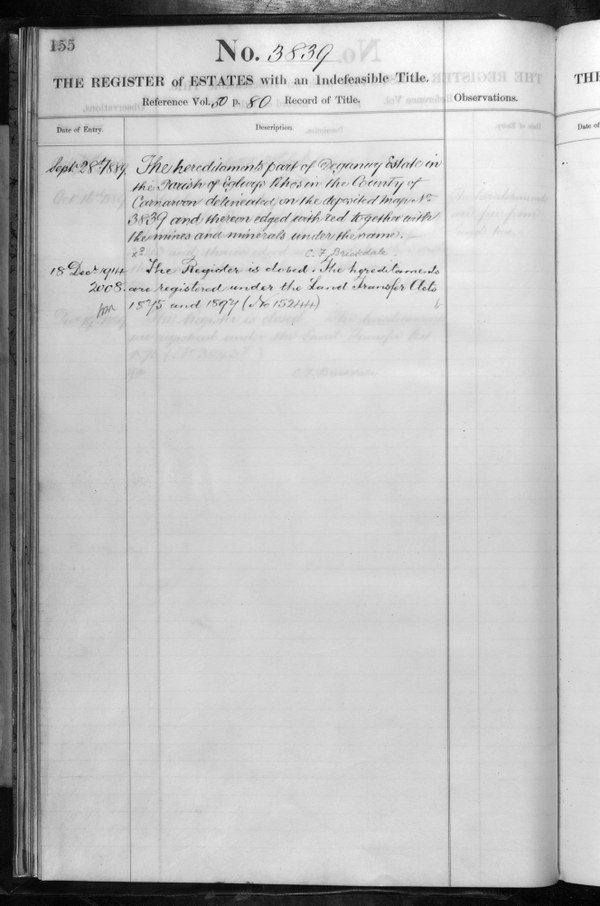 155
No. 3839
THE REGISTER of ESTATES with an Indefeasible Title.
Reference Vol. 50 p. 80 Record of Title.
Observations.
Date of Entry.
Description.
Sept. 28th 1889
The hereditaments part of Deganwy Estate in
the Parish of Eglwys Rhos in the County of
Carnarvon delineated on the deposited map No
3839 and thereon edged with red together with
the mines and minerals under the same.
C. F. Brickdale.
18 Decr 1914
The Register is closed. The hereditaments
2008
are registered under the Land Transfer Acts
1875 and 1897 (No 15244)
THE
Date of